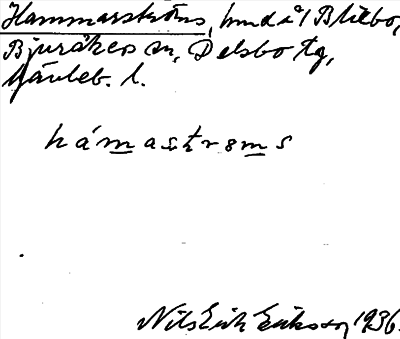 Hammarströms, hmd å/ Blitbo,
Bjuråkers sn, Delsbo tg,
Gävleb. l.
hámastrɵms
Nils Erik Eriksson 1936.